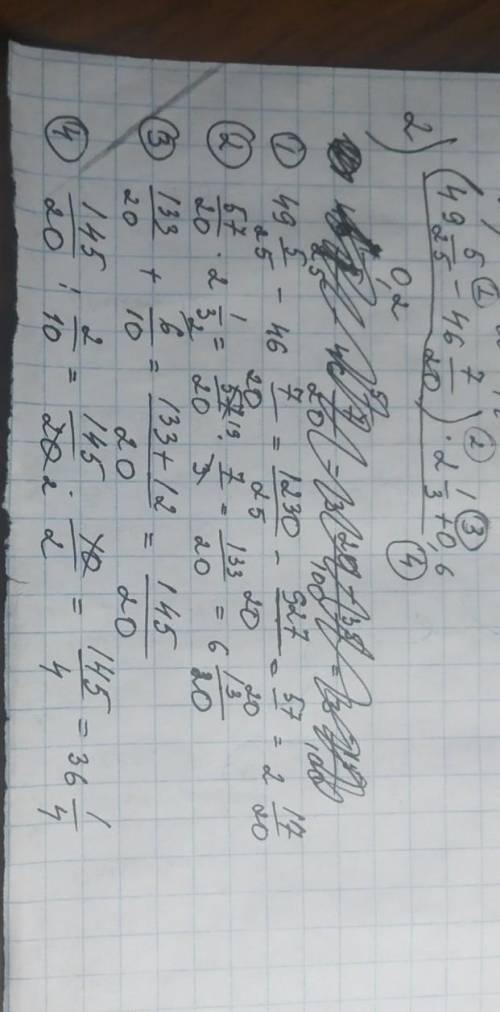 2) (49 5/25 - 46 7/20) · 2 1/3 + 0,6
0,2
① 49 5/25 - 46 7/20 = 1230/25 - 927/20 = 57/20 = 2 17/20
② 57/20 · 2 1/3 = 57/20 · 7/3 = 133/20 = 6 13/20
③ 133/20 + 6/10 = 133+12/20 = 145/20
④ 145/20 : 2/10 = 145/20 · 10/2 = 145/4 = 36 1/4